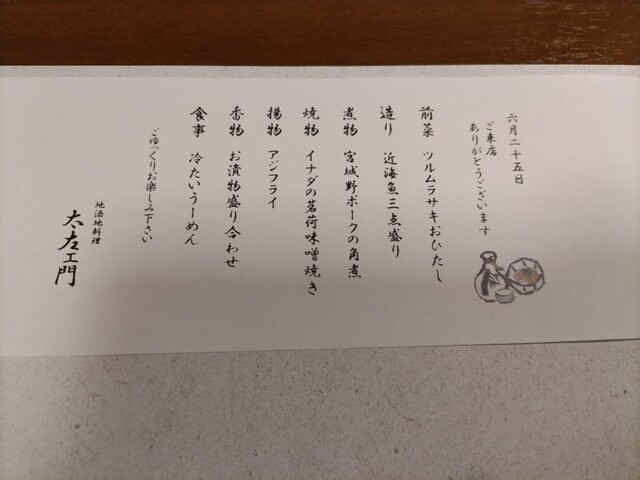 六月二十五日
ご来店
ありがとうございます
前菜 ツルムラサキおひたし
造り 近海魚三点盛り
煮物 宮城野ポークの角煮
焼物 イナダの茗荷味噌焼き
揚物 アジフライ
香物 お漬物盛り合わせ
食事 冷たいうーめん
ごゆっくりお楽しみ下さい
地酒地料理
太左ェ門